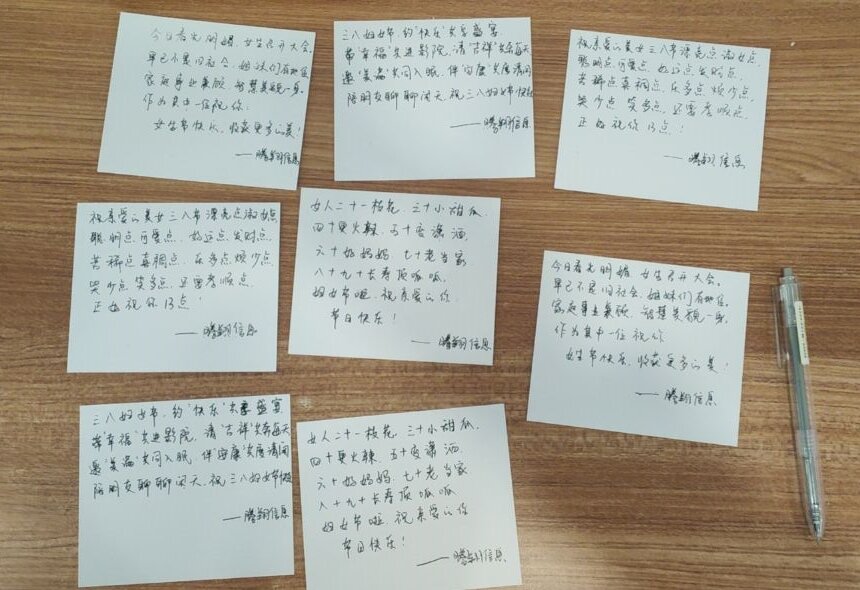 今日春光明媚，女生召开大会。
早已不是旧社会，姐妹们有地位。
家庭事业兼顾，智慧美貌一身。
作为其中一位祝你
女生节快乐，收获更多的美！
——腾翔信息
三八妇女节，约"快乐"共享盛宴
带"幸福"共进影院，请"吉祥"共奏每天
邀"美满"共同入眠，伴"安康"共度清闲
陪朋友聊聊闲天，祝三八妇女节快乐
——腾翔信息
祝亲爱的美女三八节漂亮点淑女点
聪明点可爱点，好运点发财点，
苦稀点真稠点，乐多点烦少点，
哭少点笑多点，还需孝顺点，
正好祝你13点！
——腾翔信息
祝亲爱的美女三八节漂亮点淑女点
聪明点可爱点，好运点发财点，
苦稀点真稠点，乐多点烦少点
哭少点笑多点，还需孝顺点
正好祝你13点！
——腾翔信息
女人二十一枝花，三十小甜瓜，
四十更火辣，五十变潇洒，
六十好妈妈，七十老当家
八十九十长寿顶呱呱，
妇女节啦，祝亲爱的你
节日快乐！
——腾翔信息
今日春光明媚，女生召开大会。
早已不是旧社会，姐妹们有地位。
家庭事业兼顾，智慧美貌一身，
作为其中一位祝你
女生节快乐，收获更多的美！
——腾翔信息
三八妇女节，约"快乐"共享盛宴
带"幸福"共进影院，请"吉祥"共奏每天
邀"美满"共同入眠，伴"安康"共度清闲
陪朋友聊聊闲天，祝三八妇女节快乐
——腾翔信息
女人二十一枝花，三十小甜瓜，
四十更火辣，五十变潇洒
六十好妈妈，七十老当家
八十九十长寿顶呱呱
妇女节啦，祝亲爱的你
节日快乐！
——腾翔信息